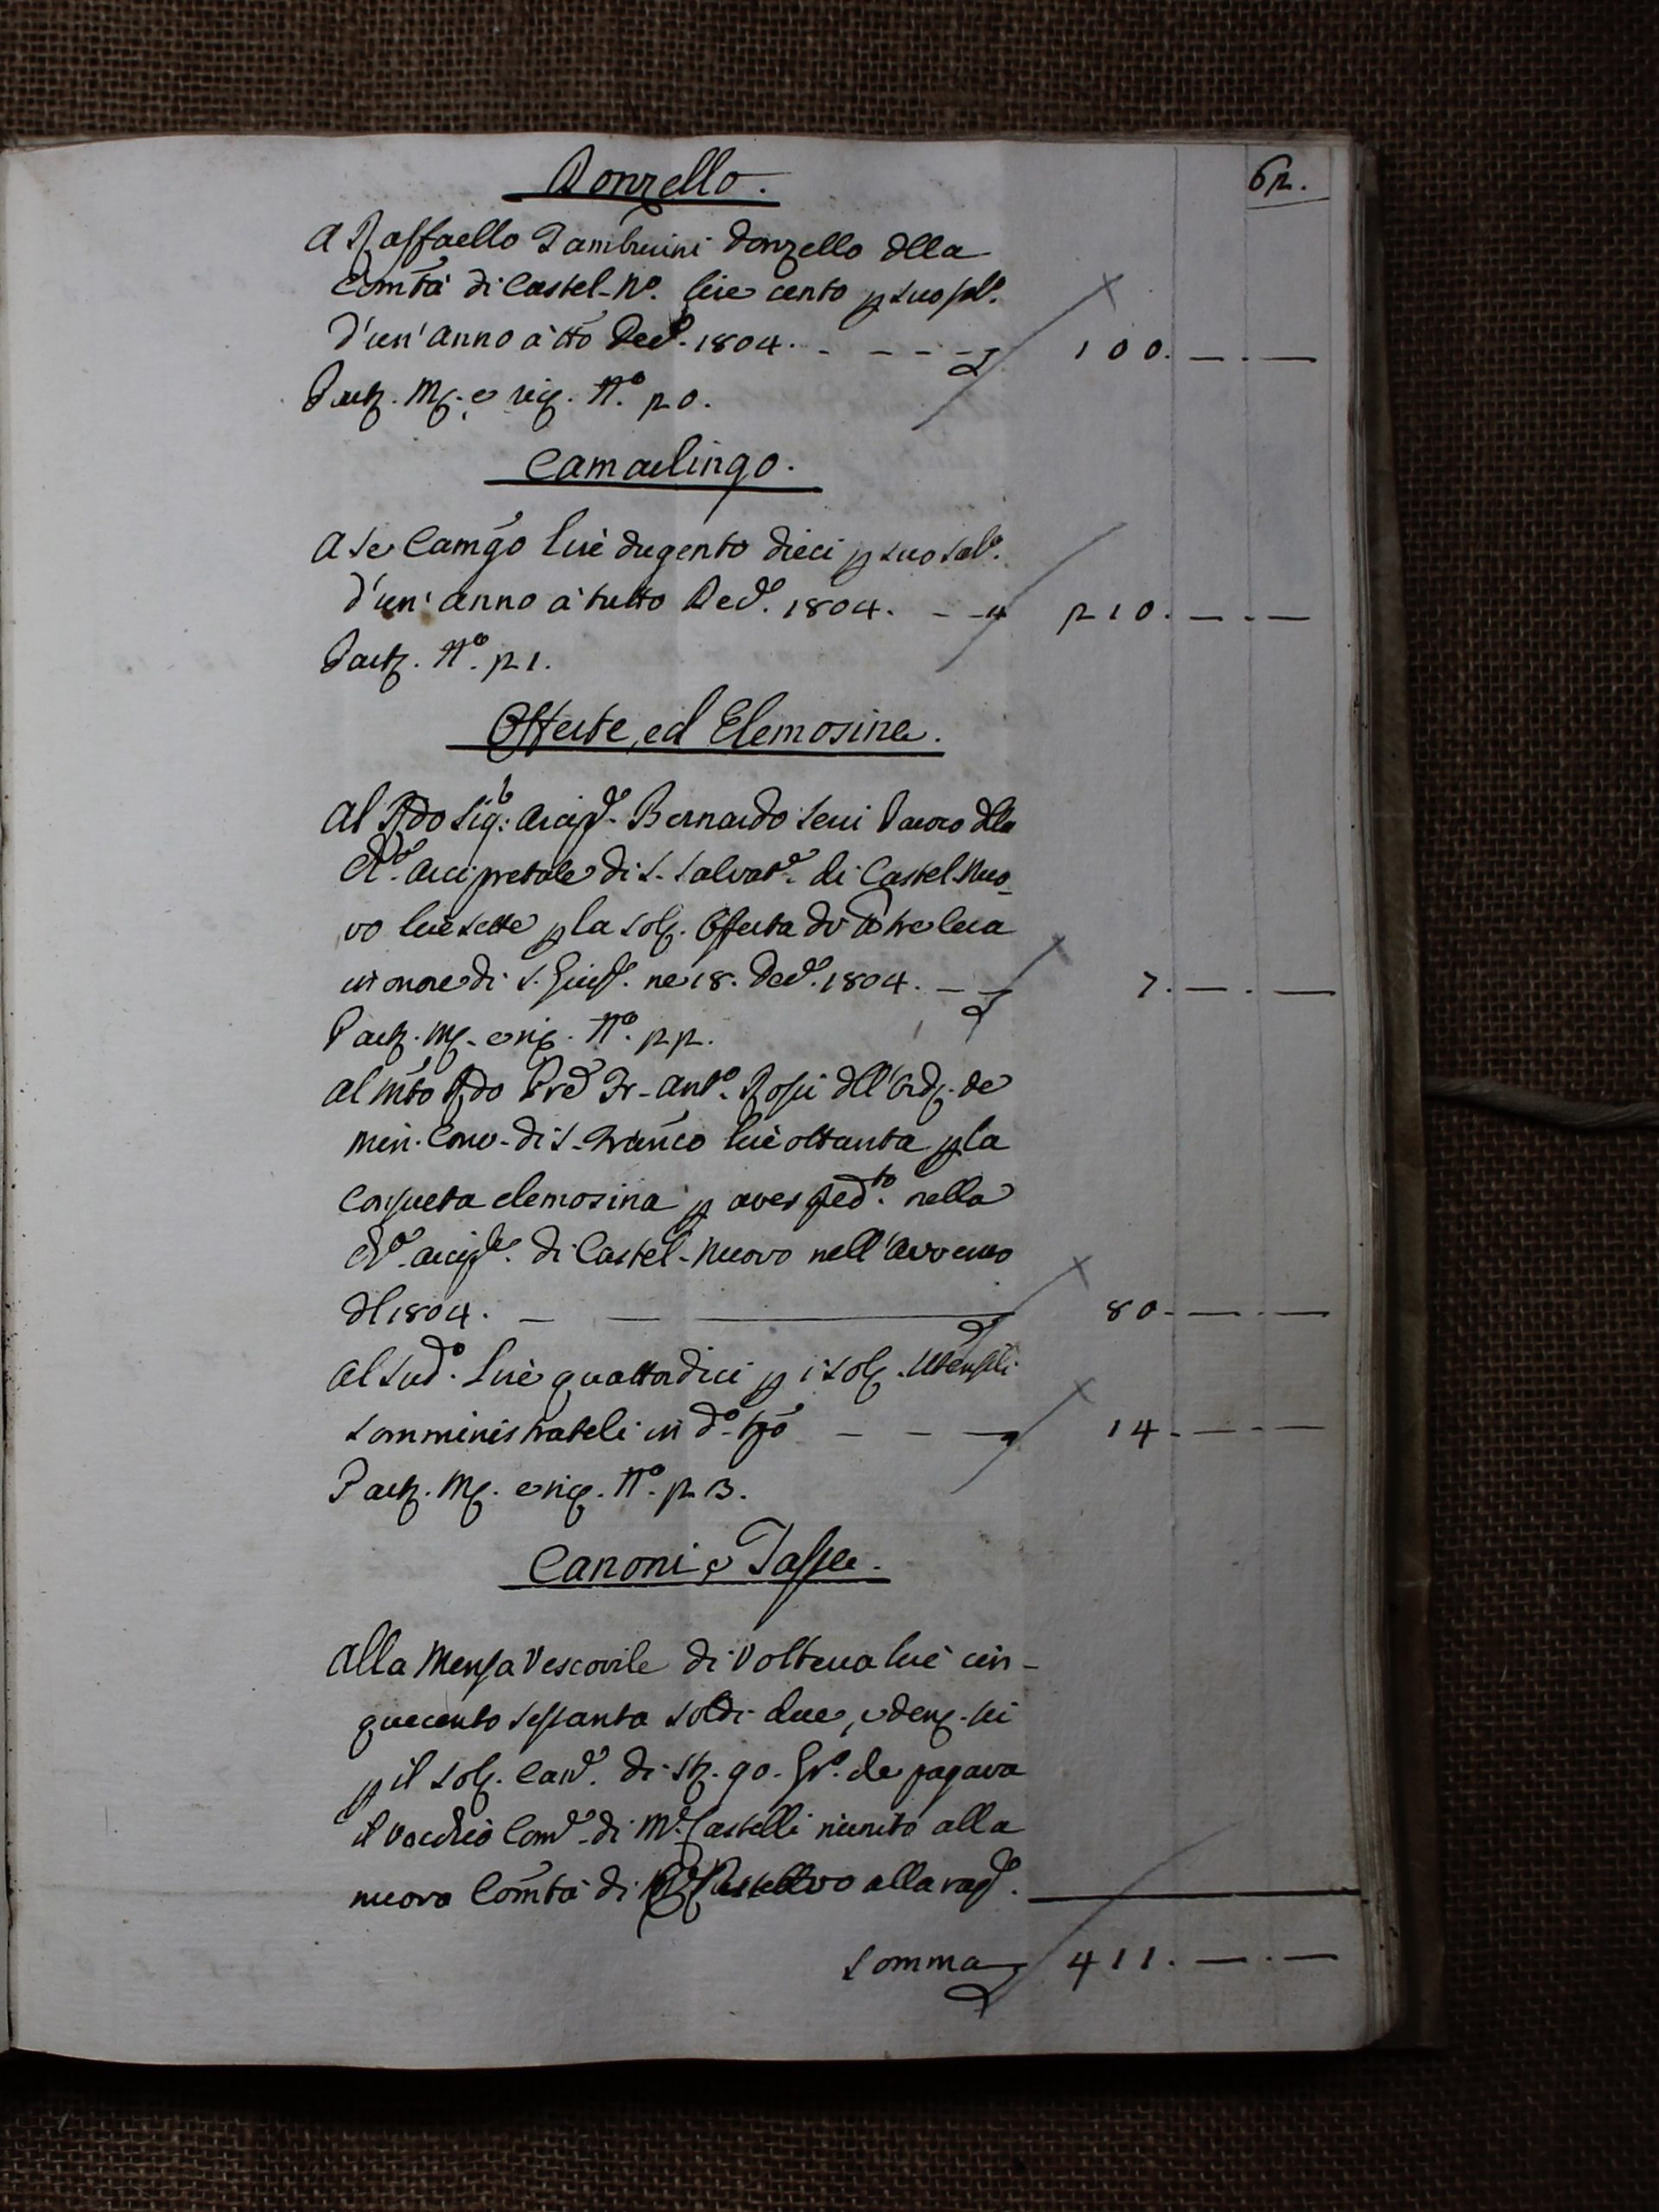 62.
Donzello.
A Raffaello Tamburini Donzello dlla
Comtà di Castel-N°. lire cento p suo sal°.
d'un'anno à tto Dec̃e. 1804. 100. — . —
Part. Mg. e ric. N°. 20.
Camarlingo.
A se Camgo lire dugento dieci p suo sal°.
d'un'anno à tutto Dec̃e. 1804. 210. — . —
Part. N°. 21.
Offerte, ed Elemosine.
Al Rdo Sig: Arcip̃e. Bernardo Seri Paroco dlla
Arcipretale di S. Salvat̃e. di Castel-Nuo-
vo lire sette p la sol. Offerta di tre
in onore di S. ne 18. Dec̃e. 1804. 7. — . —
Part. Mg. e ric. N°. 22.
Al mto Rdo Prẽ Fr. Ant°. Rossi dll'Ord. de
Min. Conv. di S. Franco lire ottanta p la
consueta elemosina p aver pred.to nella
di Castel-Nuovo nell'Avvento
dl 1804. 80. — . —
Al Sud°. Lire quattordici p i sol. Utensili
somministrateli in d°. tpo 14. — . —
Part. Mg. e ric. N°. 23.
Canoni e Tasse.
Alla Mensa Vescovile di Volterra lire cin-
quecento sessanta soldi due, e den. sei
p il sol. Can̄e. di st. 90. Gr°. che pagava
il vecchio Com̃e. di M. Castelli riunito alla
nuova Comtà di alla rag̃e.
Somma 411. — . —